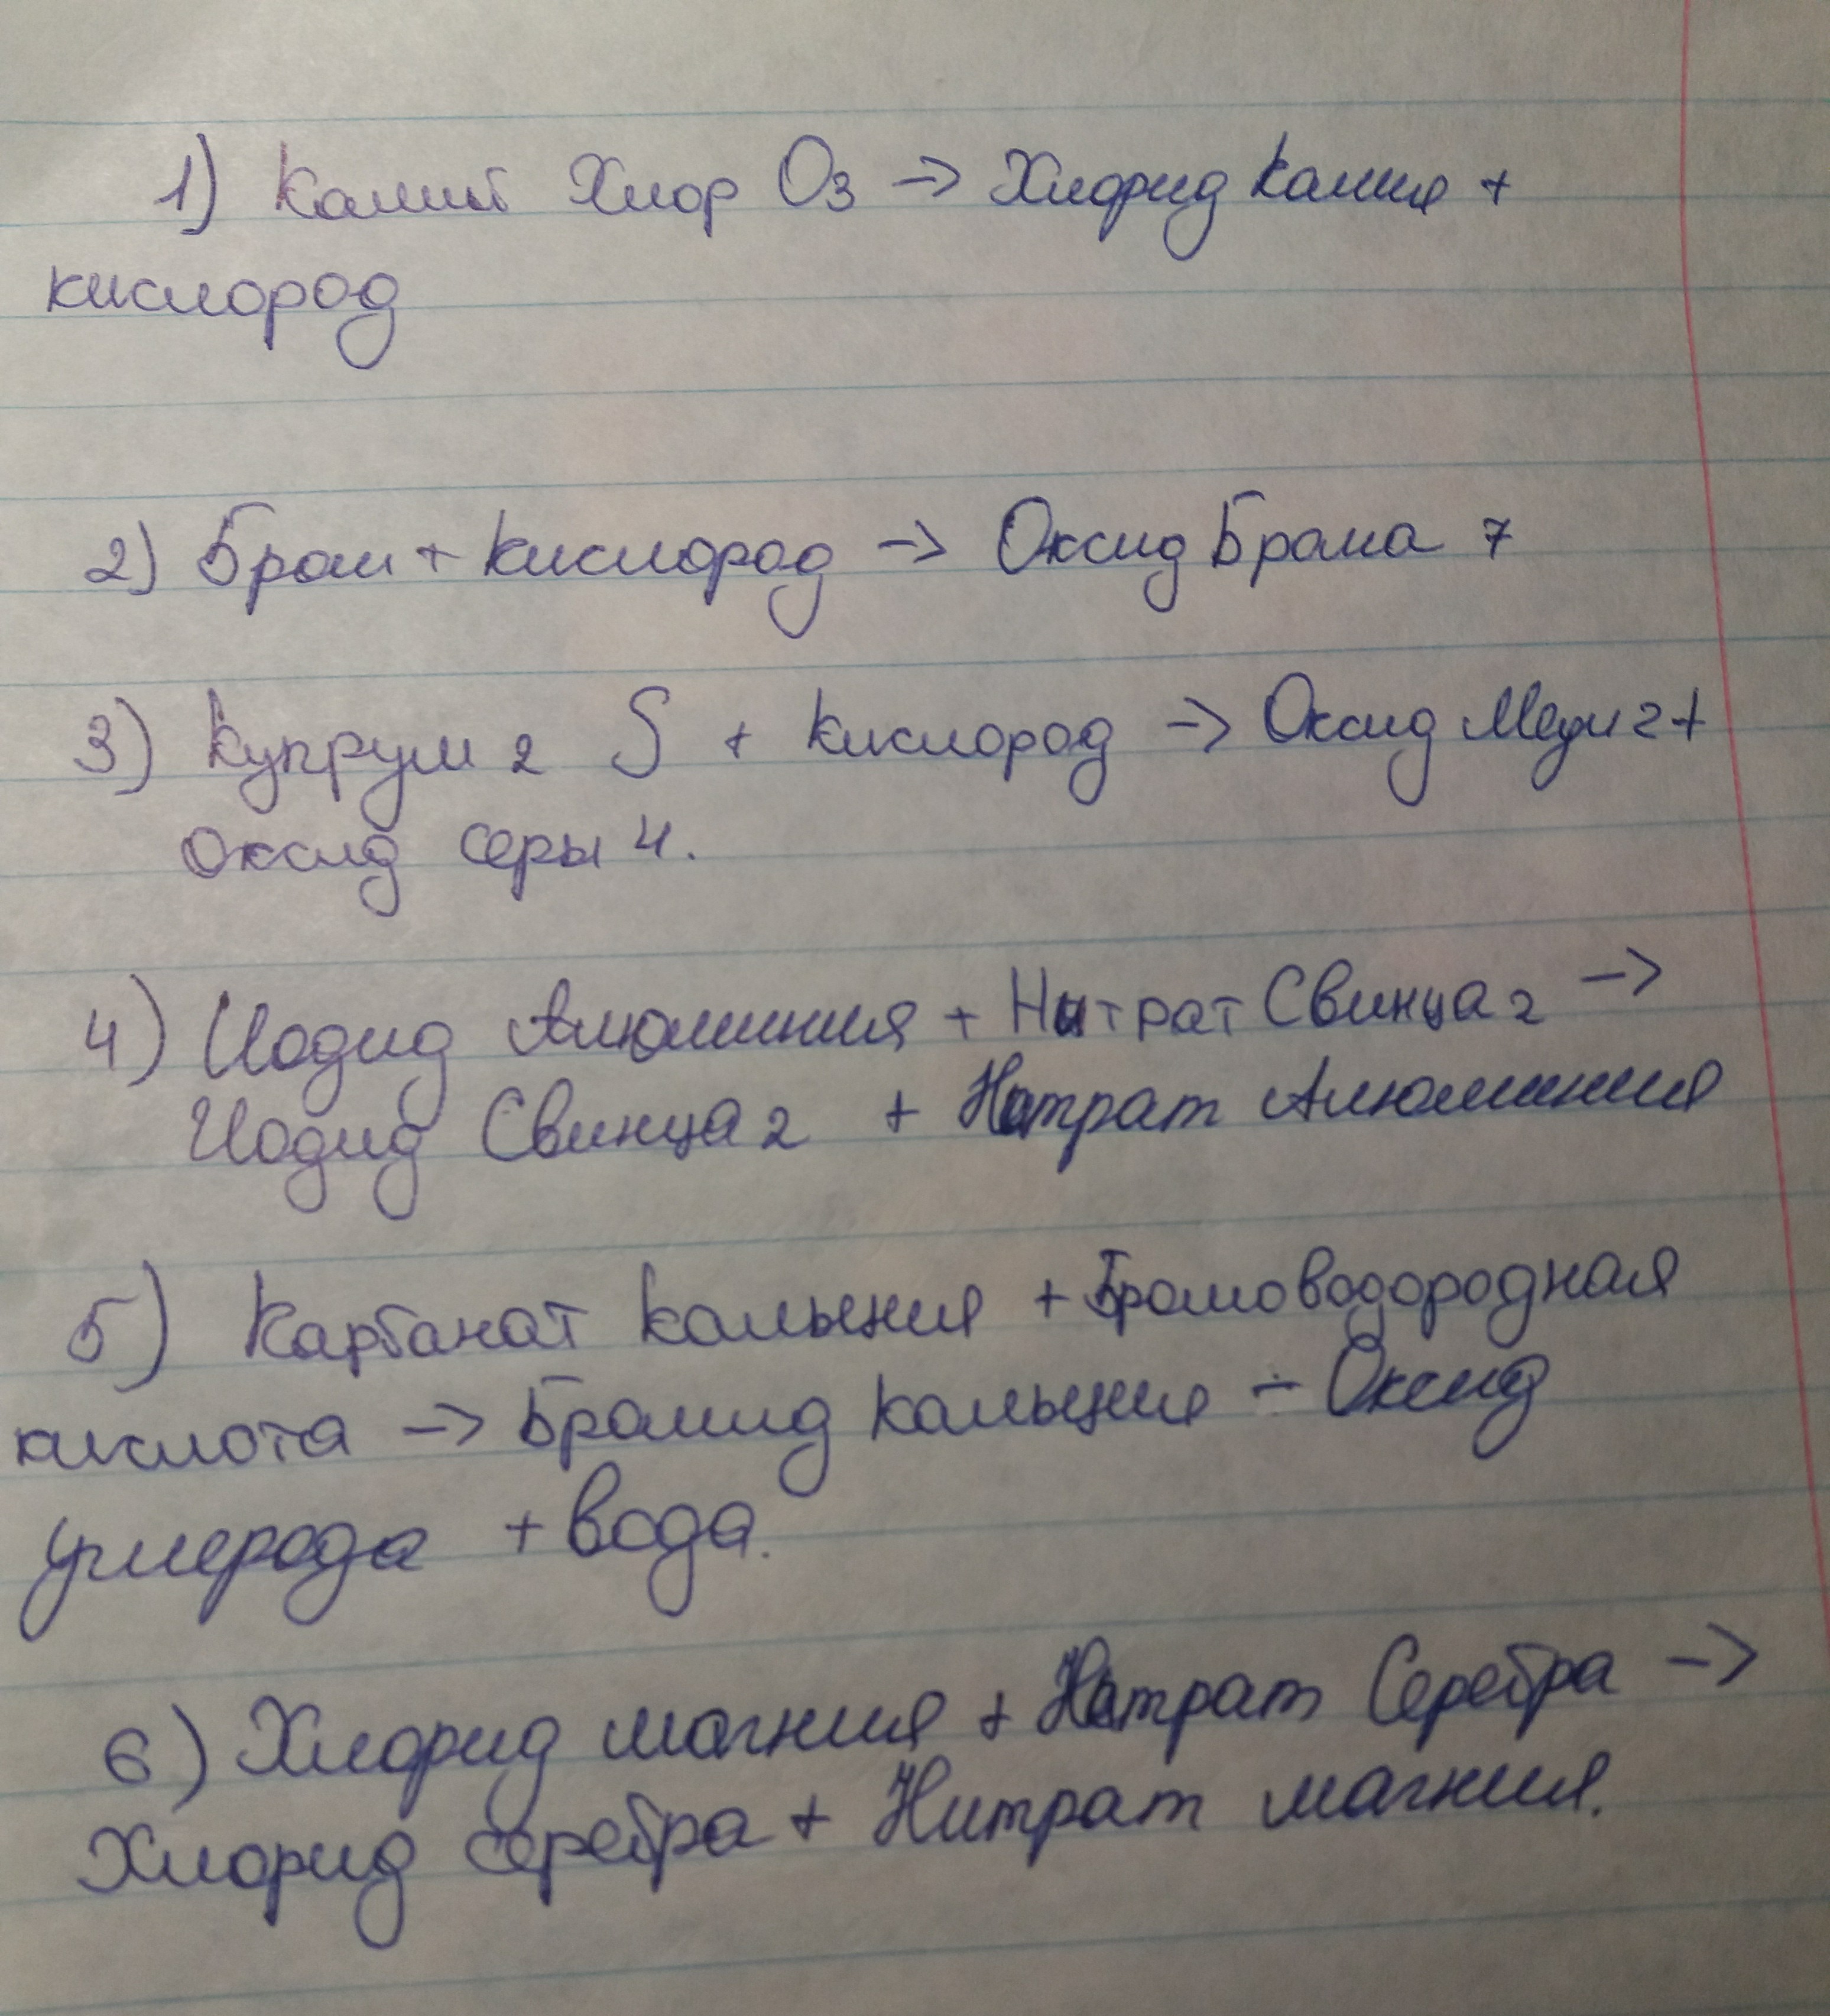 1) Калий Хлор O3 → Хлорид калия +
кислород
2) Бром + кислород → Оксид Брома 7
3) Купрум 2 S + кислород → Оксид Меди 2 +
Оксид серы 4.
4) Иодид Алюминия + Нитрат Свинца 2 →
Иодид Свинца 2 + Нитрат Алюминия
5) Карбанат кальция + Бромоводородная
кислота → Бромид кальция + Оксид
углерода + вода.
6) Хлорид магния + Нитрат Серебра →
Хлорид серебра + Нитрат магния.